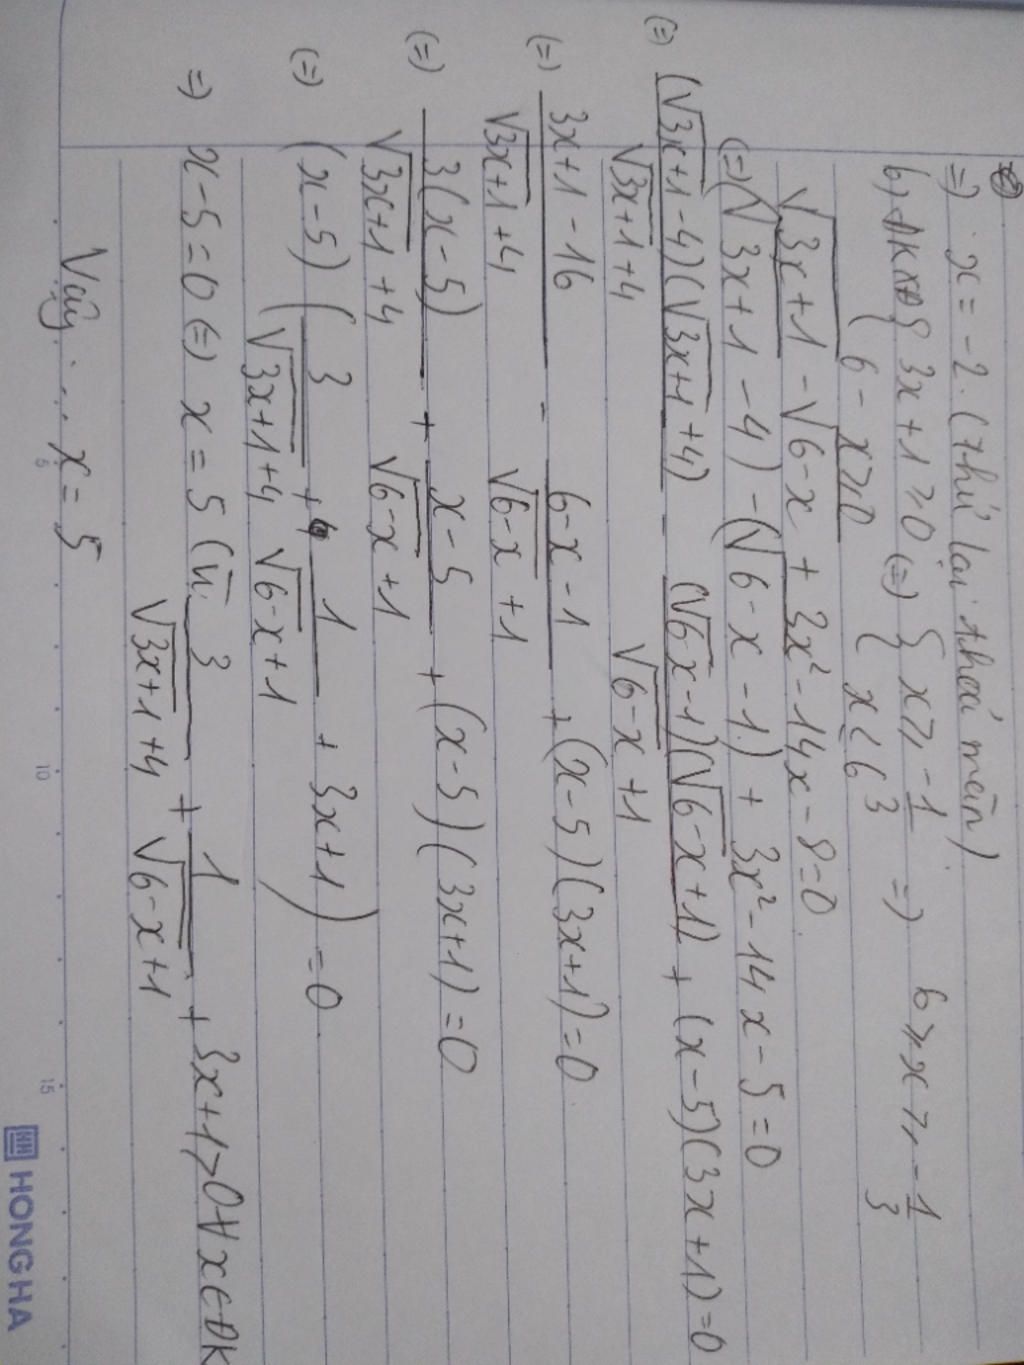 =) x = -2. (thử lại thoả mãn)
b, ĐKXĐ { 3x+1 ≥ 0 (=) { x ≥ -1/3 => 6 ≥ x ≥ -1/3
{ 6-x ≥ 0 { x ≤ 6
√3x+1 - √6-x + 3x² - 14x - 8 = 0.
(=) (√3x+1 - 4) - (√6-x - 1) + 3x² - 14x - 5 = 0
(=) (√3x+1 - 4)(√3x+1 + 4)/√3x+1 + 4 - (√6-x - 1)(√6-x + 1)/√6-x + 1 + (x-5)(3x+1) = 0
(=) 3x+1-16/√3x+1 + 4 - 6-x-1/√6-x + 1 + (x-5)(3x+1) = 0
(=) 3(x-5)/√3x+1 + 4 + x-5/√6-x + 1 + (x-5)(3x+1) = 0
(=) (x-5) (3/√3x+1 + 4 + 1/√6-x + 1 + 3x+1) = 0
=) x-5 = 0 (=) x = 5 (vì 3/√3x+1 + 4 + 1/√6-x + 1 + 3x+1 > 0 ∀ x ∈ ĐK
Vậy ... x = 5
5 10 15
HONG HA